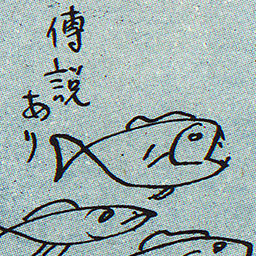 傳説
あり